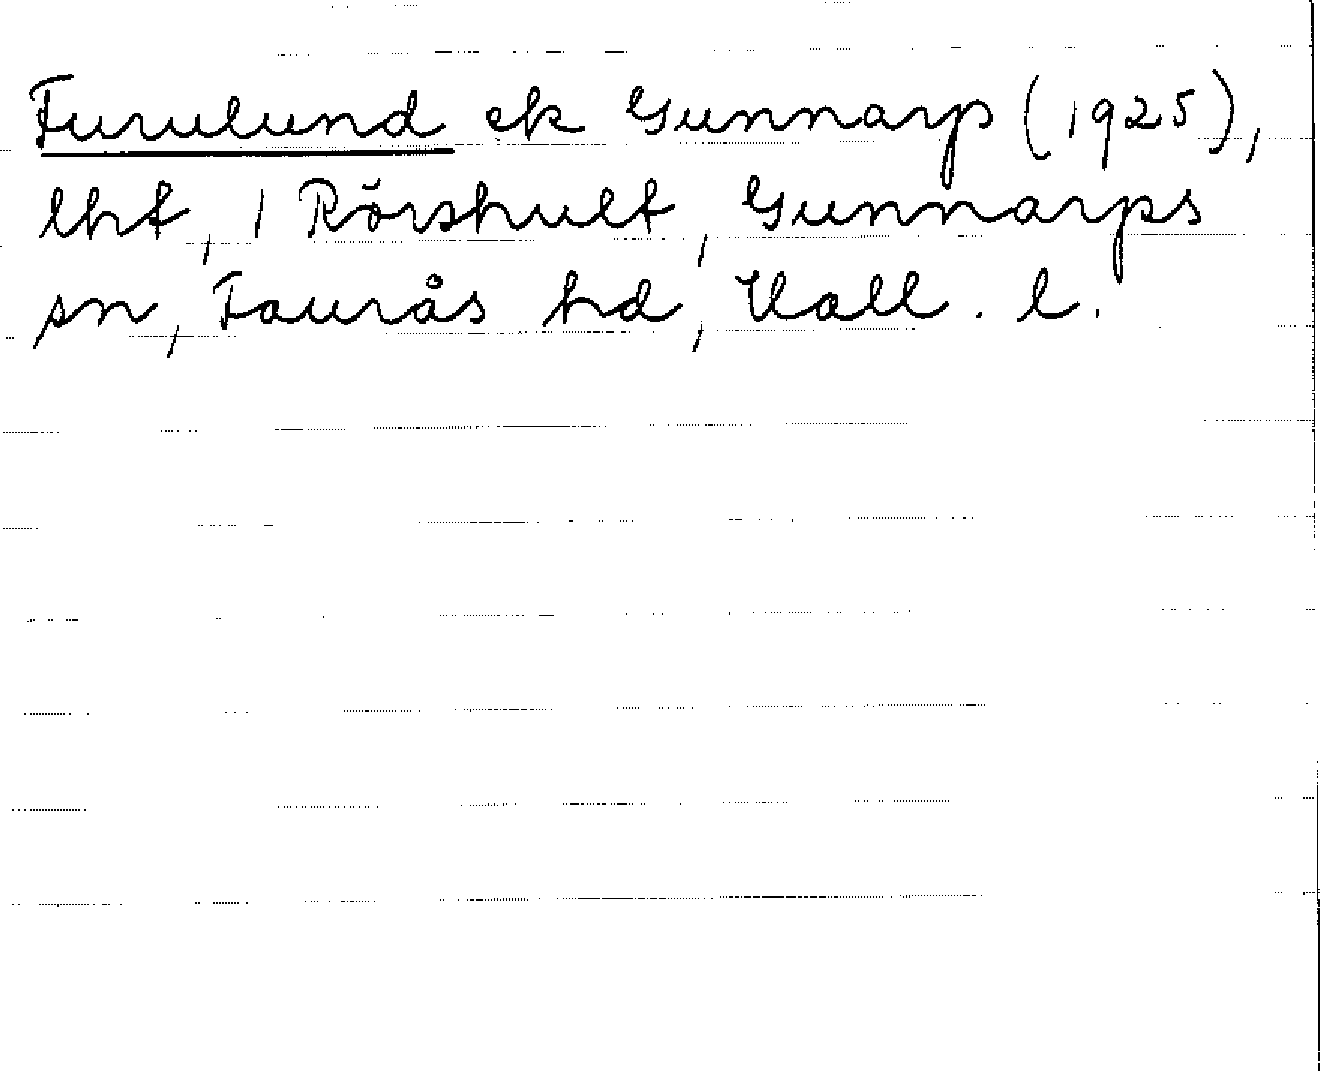 Furulund ek Gunnarp (1925),
lht, 1 Rörshult, Gunnarps
sn, Faurås hd, Hall. l.